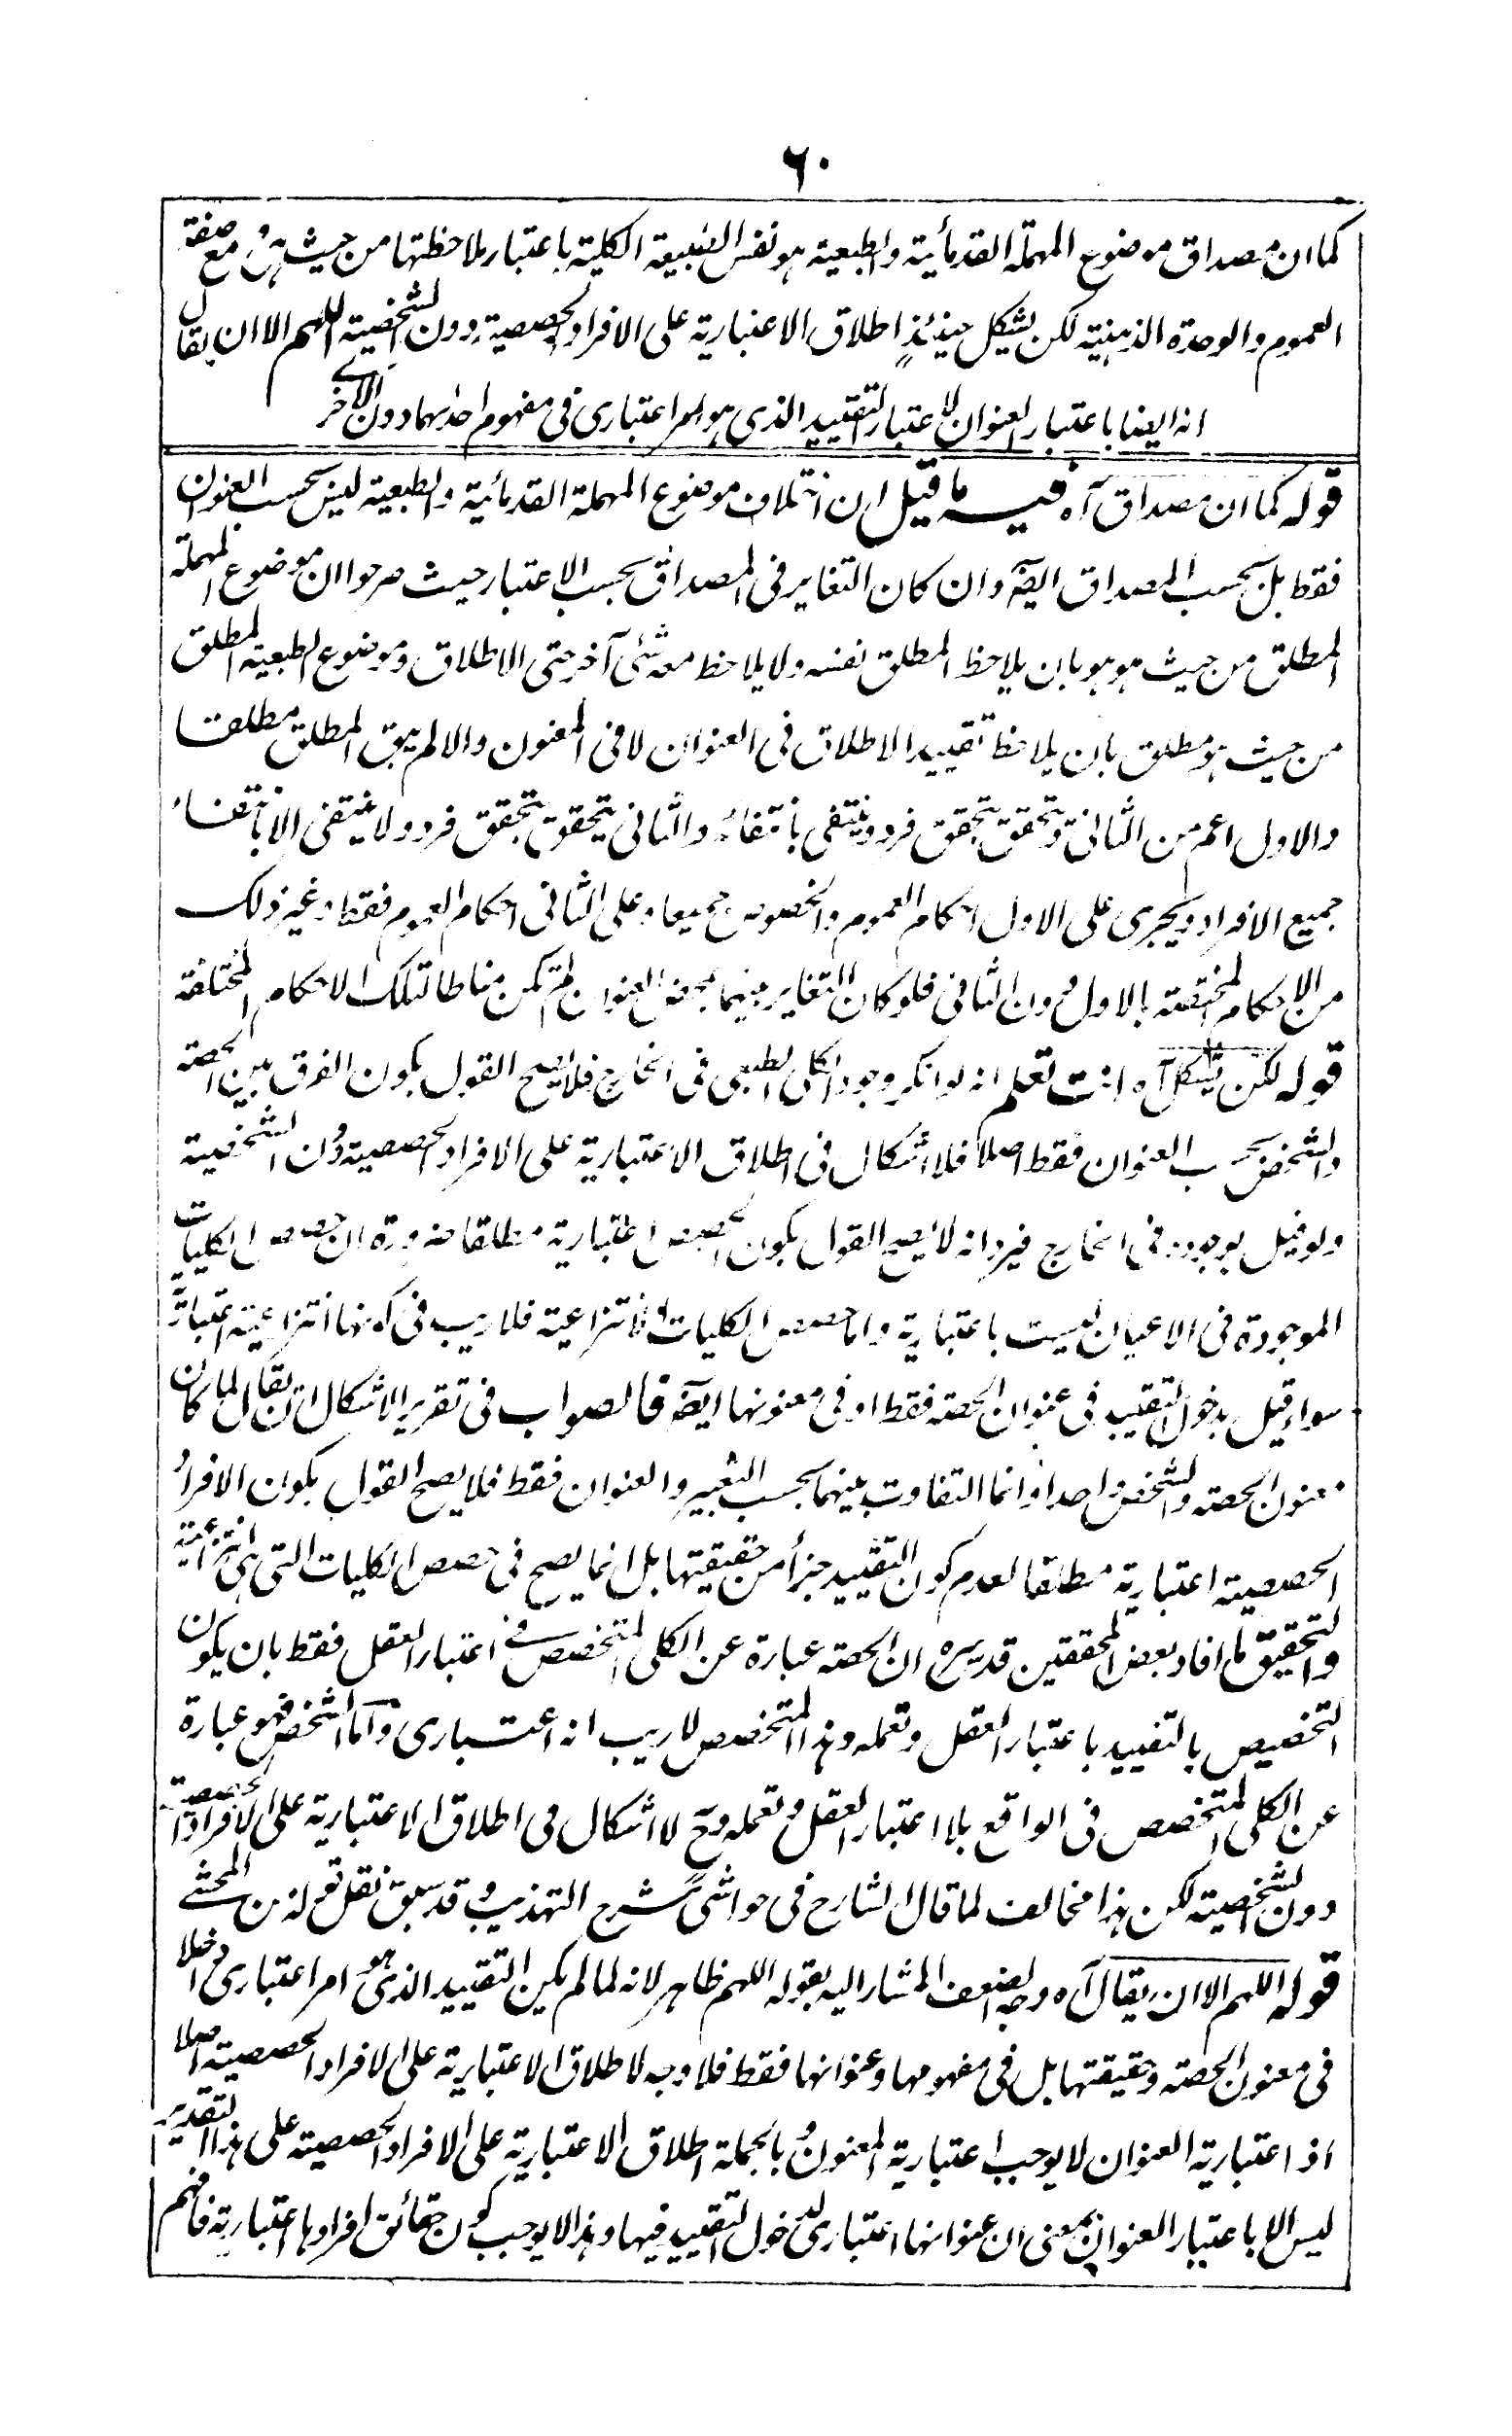 ٦٠
كما ان مصداق موضوع المهملة القدمائية والطبعية هو نفس الطبيعة الكلية باعتبار ملاحظتها من حيث هى او مع صفة
العموم والوحدة الذهنية لكن يشكل حينئذٍ اطلاق الاعتبارية على الافراد الحصصية دون الشخصية اللهم الا ان يقال
انه ايضا باعتبار العنوان لاعتبار التقييد الذى هو امر اعتبارى فى مفهوم احدهما دون الآخر
قوله كما ان مصداق آه فيه ما قيل ان اختلاف موضوع المهملة القدمائية والطبعية ليس بحسب العنوان
فقط بل بحسب المصداق ايضً وان كان التغاير فى المصداق بحسب الاعتبار حيث صرحوا ان موضوع المهملة
المطلق من حيث هو هو بان يلاحظ المطلق نفسه ولا يلاحظ معه شئ آخر حتى الاطلاق وموضوع الطبعية المطلق
من حيث هو مطلق بان يلاحظ تقييد الاطلاق فى العنوان لا فى المعنون والا لم يبق المطلق مطلقا
والاول اعم من الثانى ويتحقق بتحقق فرد وينتفى بانتفائه والثانى يتحقق بتحقق فرد ولا ينتفى الا بانتفاء
جميع الافراد ويجرى على الاول احكام العموم والخصوص جميعا وعلى الثانى احكام العموم فقط وغير ذلك
من الاحكام المختصة بالاول دون الثانى فلو كان التغاير بينهما بمحض العنوان لم تكن مناطا لتلك الاحكام المختلفة
قوله لكن يشكل آه انت تعلم انه لو انكر وجود الكلى الطبعى فى الخارج فلا يصح القول بكون الفرق بين الحصة
والشخص بحسب العنوان فقط اصلا فلا اشكال فى اطلاق الاعتبارية على الافراد الحصصية دون الشخصية
ولو قيل بوجوده فى الخارج فيرد انه لا يصح القول بكون الحصص اعتبارية مطلقا ضرورة ان حصص الكليات
الموجودة فى الاعيان ليست باعتبارية واما حصص الكليات الانتزاعية فلا ريب فى كونها انتزاعية اعتبارية
سواء قيل بدخول التقييد فى عنوان الحصة فقط او فى معنونها ايضً فالصواب فى تقرير الاشكال ان يقال لما كان
معنون الحصة والشخص واحدا وانما التفاوت بينهما بحسب التعبير والعنوان فقط فلا يصح القول بكون الافراد
الحصصية اعتبارية مطلقا لعدم كون التقييد جزأ من حقيقتها بل انما يصح فى حصص الكليات التى هى انتزاعية
والتحقيق ما افاد بعض المحققين قدسره ان الحصة عبارة عن الكلى المتخصص فى اعتبار العقل فقط بان يكون
التخصيص بالتقييد باعتبار العقل وتعمله وهذا المتخصص لا ريب انه اعتبارى واما الشخص فهو عبارة
عن الكلى المتخصص فى الواقع بلا اعتبار العقل وتعمله وحٍ لا اشكال فى اطلاق الاعتبارية على الافراد الحصصية
دون الشخصية لكن هذا مخالف لما قال الشارح فى حواشى شرح التهذيب وقد سبق نقل قوله من المحشى
قوله اللهم الا ان يقال آه وجه الضعف المشار اليه بقوله اللهم ظاهر لانه لما لم يكن التقييد الذى هو امر اعتبارى داخلا
فى معنون الحصة وحقيقتها بل فى مفهومها وعنوانها فقط فلا وجه لاطلاق الاعتبارية على الافراد الحصصية اصلا
اذ اعتبارية العنوان لا يوجب اعتبارية المعنون وبالجملة اطلاق الاعتبارية على الافراد الحصصية على هذا التقدير
ليس الا باعتبار العنوان بمعنى ان عنوانها اعتبارى لدخول التقييد فيها وهذا لا يوجب كون حقائق افرادها اعتبارية فافهم